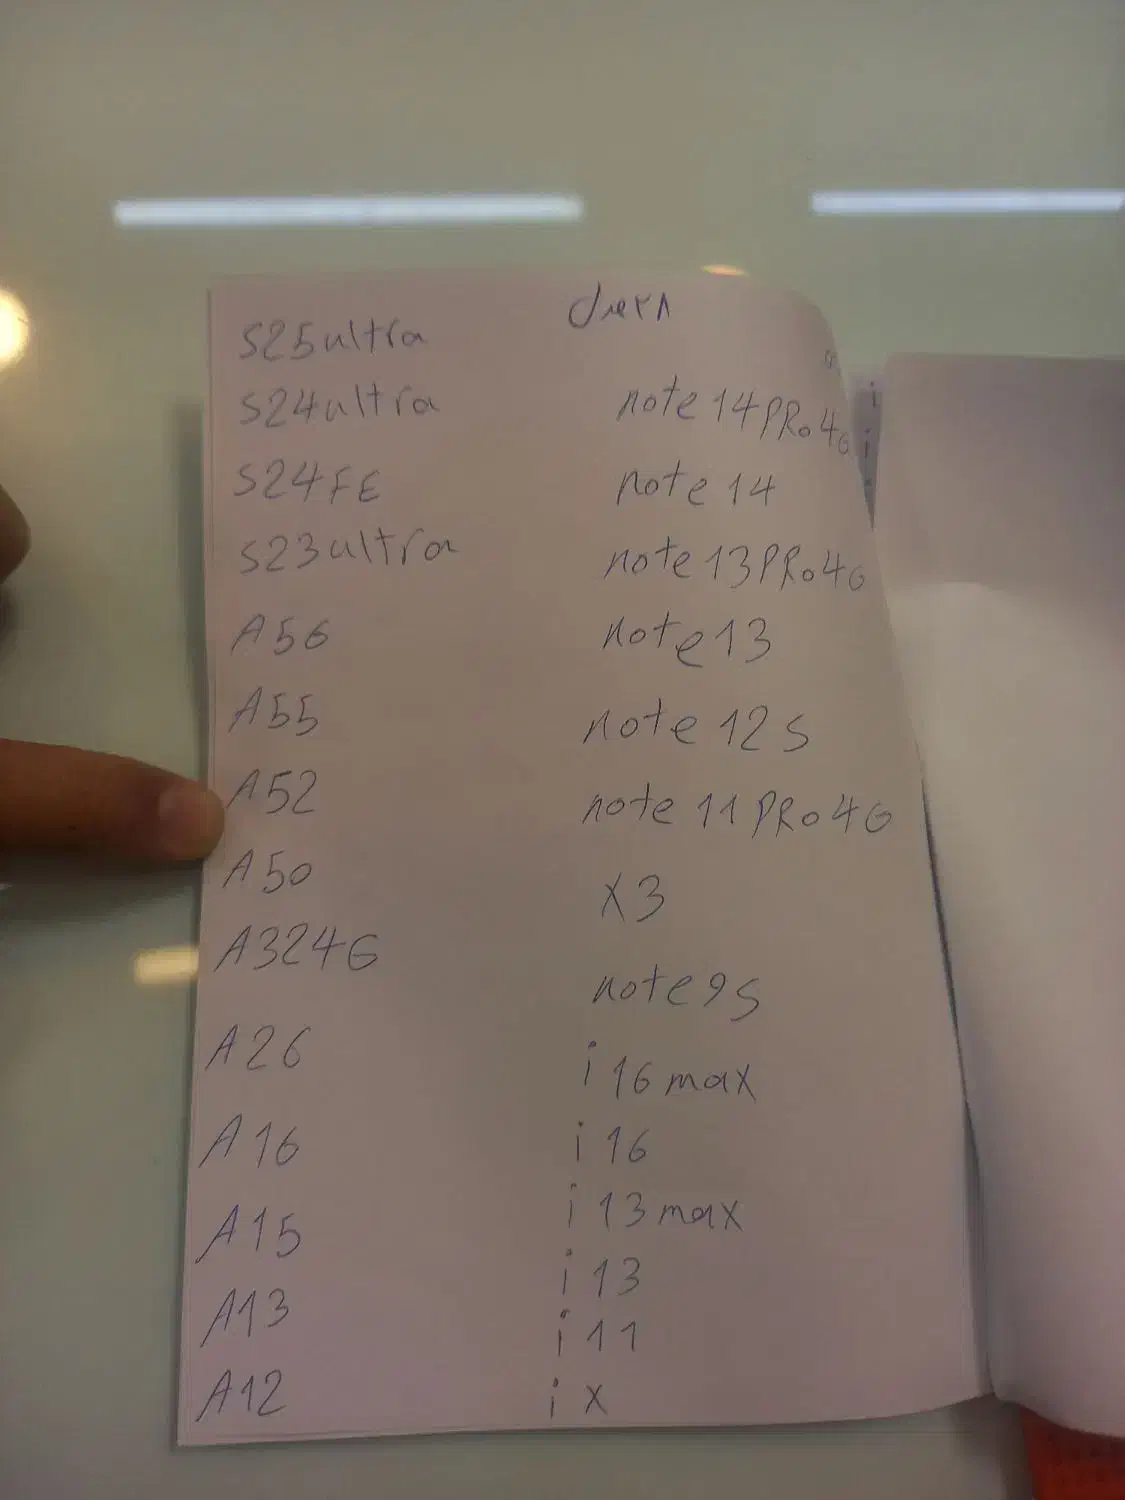 S25ultra
S24ultra
S24FE
S23ultra
A56
A55
A52
A50
A324G
A26
A16
A15
A13
A12
note 14PRo4G
note 14
note 13PRo4G
note 13
note 12s
note 11PRo4G
X3
note9s
i 16 max
i 16
i 13 max
i 13
i 11
i X